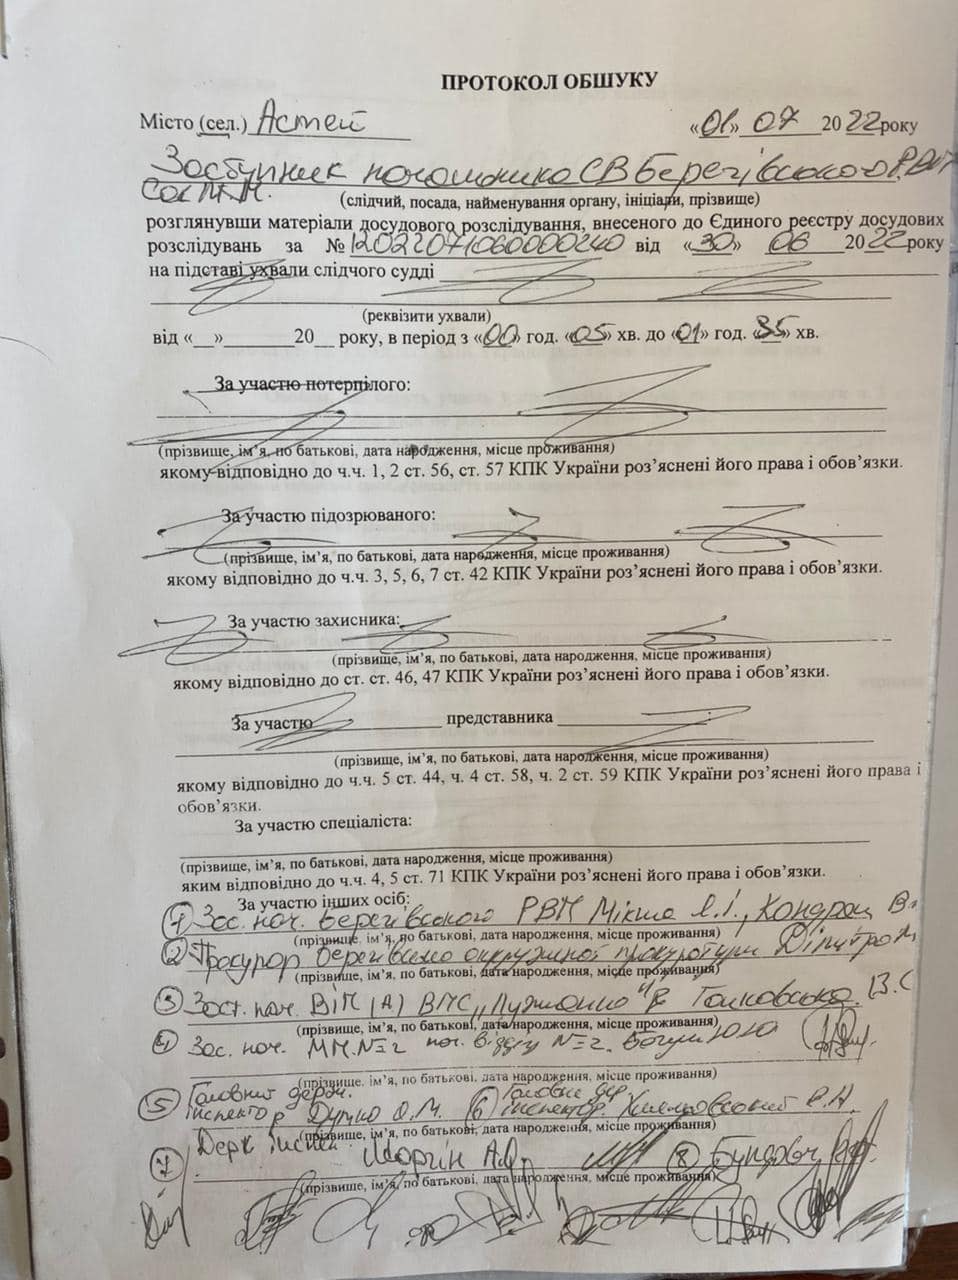 ПРОТОКОЛ ОБШУКУ
Місто (сел.) Астей «01» 07 2022 року
Заступник начальника СВ Берегівського РВП
(слідчий, посада, найменування органу, ініціари, прізвище)
розглянувши матеріали досудового розслідування, внесеного до Єдиного реєстру досудових
розслідувань за № 12022071060000240 від «30» 06 2022 року
на підставі ухвали слідчого судді
(реквізити ухвали)
від «__»________20__ року, в період з «00» год. «05» хв. до «01» год. «35» хв.
За участю потерпілого:
(прізвище, ім’я, по батькові, дата народження, місце проживання)
якому відповідно до ч.ч. 1, 2 ст. 56, ст. 57 КПК України роз’яснені його права і обов’язки.
За участю підозрюваного:
(прізвище, ім’я, по батькові, дата народження, місце проживання)
якому відповідно до ч.ч. 3, 5, 6, 7 ст. 42 КПК України роз’яснені його права і обов’язки.
За участю захисника:
(прізвище, ім’я, по батькові, дата народження, місце проживання)
якому відповідно до ст. ст. 46, 47 КПК України роз’яснені його права і обов’язки.
За участю ____________ представника ____________
(прізвище, ім’я, по батькові, дата народження, місце проживання)
якому відповідно до ч.ч. 5 ст. 44, ч. 4 ст. 58, ч. 2 ст. 59 КПК України роз’яснені його права і
обов’язки.
За участю спеціаліста:
(прізвище, ім’я, по батькові, дата народження, місце проживання)
яким відповідно до ч.ч. 4, 5 ст. 71 КПК України роз’яснені його права і обов’язки.
За участю інших осіб:
1 Зас. нач. Берегівського РВП
(прізвище, ім’я, по батькові, дата народження, місце проживання)
2 Прокурор Берегівської окружної прокуратури
(прізвище, ім’я, по батькові, дата народження, місце проживання)
3 Заст. нач. ВМС
(прізвище, ім’я, по батькові, дата народження, місце проживання)
4 Зас. нач. №2 нач. відділу №2
(прізвище, ім’я, по батькові, дата народження, місце проживання)
5 Головний держ.
інспектор 6 інспектор
(прізвище, ім’я, по батькові, дата народження, місце проживання)
7 Держ 8
(прізвище, ім’я, по батькові, дата народження, місце проживання)